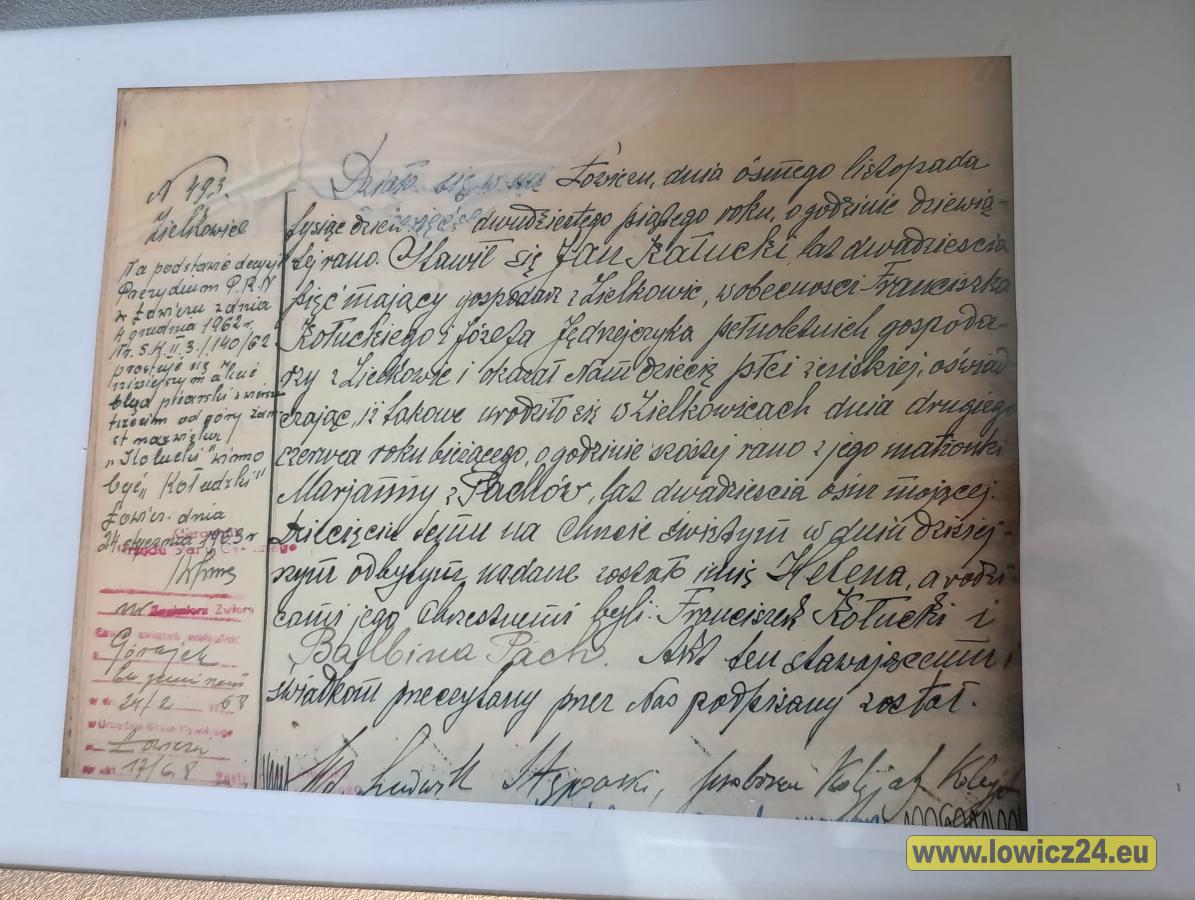 N 493.
Zielkowice
Na podstawie decyzji
Prezydium P.R.N
w Łowiczu z dnia
4 grudnia 1962 r.
Nr. S.K.II.3./140/62
prostuje się w
niniejszym akcie
błąd pisarski w wierszu
trzecim od góry zam
st nazwiska
"Kołucki" winno
być "Kołudzki"
Łowicz. dnia
24 stycznia 1963 r
Urzędu Stanu Cywilnego
24/2 68
Łowicz
17/68
Działo się w Łowiczu, dnia ósmego listopada
tysiąc dziewięćset dwudziestego piątego roku, o godzinie dziewią-
tej rano. Stawił się Jan Kołucki, lat dwadzieścia
pięć mający gospodarz z Zielkowic, w obecności Franciszka
Kołuckiego i Józefa Jędrzejczyka pełnoletnich gospoda-
rzy z Zielkowic i okazał Nam dziecię płci żeńskiej, oświad-
czając, iż takowe urodziło się w Zielkowicach dnia drugiego
czerwca roku bieżącego, o godzinie szóstej rano z jego małżonki
Marjanny z Pachów, lat dwadzieścia ośm mającej.
Dziecięciu temu na Chrzcie świętym w dniu dzisiej-
szym odbytym, nadane zostało imię Helena, a rodzi-
cami jego chrzestnymi byli: Franciszek Kołucki i
Balbina Pach. Akt ten stawającemu i
świadkom przeczytany przez Nas podpisany został.
www.lowicz24.eu